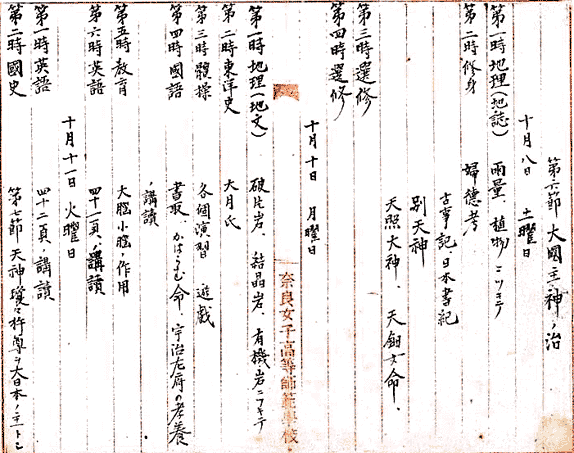 第六節 大國主ノ神ノ治
十月八日 土曜日
第一時 地理(地誌) 雨量、植物ニツキテ
第二時 修身 婦德考
古事記、日本書紀
別天神
天照大神、天鈿女命、
第三時 選修
第四時 選修
十月十日 月曜日
奈良女子高等師範學校
第一時 地理(地文) 破片岩、結晶岩、有機岩ニツキテ
第二時 東洋史 大月氏
第三時 體操 各個演習 遊戲
第四時 國語 書取、かはらむ命 宇治左府の孝養
、講讀
第五時 敎育 大腦小腦ノ作用
第六時 英語 四十一頁、講讀
十月十一日 火曜日
第一時 英語 四十二頁、講讀
第二時 國史 第七節 天神瓊々杵尊ヲ大日本ノ主トシ